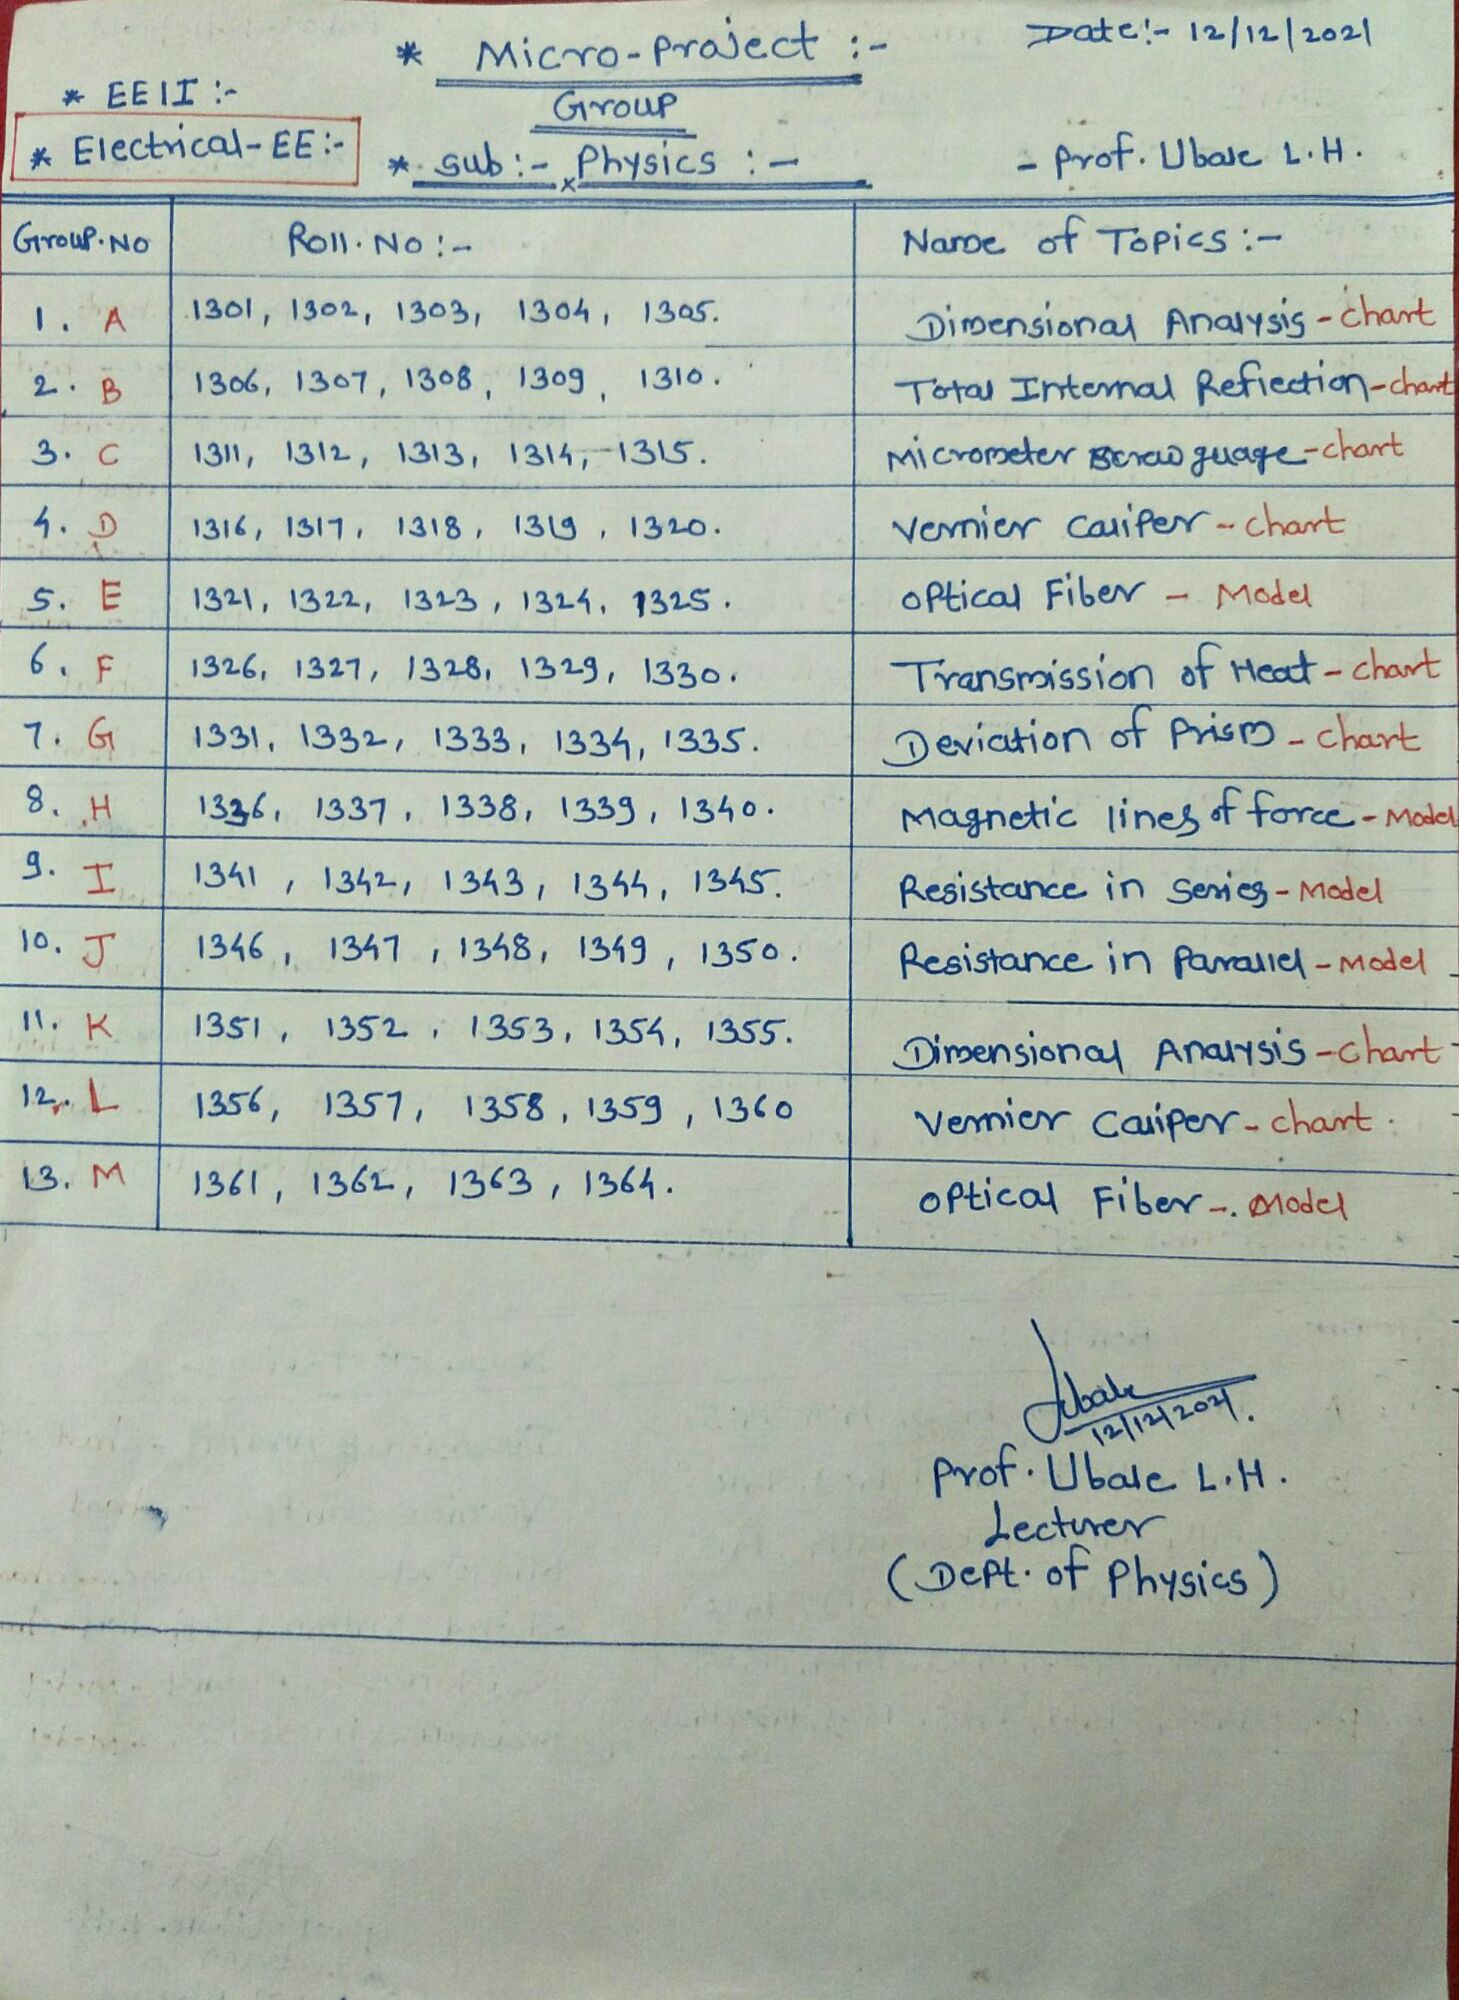 * Micro-Project :- Date:- 12/12/2021
* EE1I :- Group
* Electrical-EE:- * sub:- Physics :- - Prof. Ubale L.H.
Group.No Roll.No:- Name of Topics:-
1. A 1301, 1302, 1303, 1304, 1305. Dimensional Analysis - chart
2. B 1306, 1307, 1308, 1309, 1310. Total Internal Reflection - chart
3. C 1311, 1312, 1313, 1314, 1315. Micrometer Screw guage - chart
4. D 1316, 1317, 1318, 1319, 1320. Vernier Caliper - chart
5. E 1321, 1322, 1323, 1324, 1325. Optical Fiber - Model
6. F 1326, 1327, 1328, 1329, 1330. Transmission of Heat - chart
7. G 1331, 1332, 1333, 1334, 1335. Deviation of Prism - chart
8. H 1336, 1337, 1338, 1339, 1340. Magnetic lines of force - Model
9. I 1341, 1342, 1343, 1344, 1345. Resistance in series - Model
10. J 1346, 1347, 1348, 1349, 1350. Resistance in Parallel - Model
11. K 1351, 1352, 1353, 1354, 1355. Dimensional Analysis - chart
12. L 1356, 1357, 1358, 1359, 1360 Vernier Caliper - chart.
13. M 1361, 1362, 1363, 1364. Optical Fiber - Model
Ubale
12/12/2021.
Prof. Ubale L.H.
Lecturer
(Dept. of Physics)